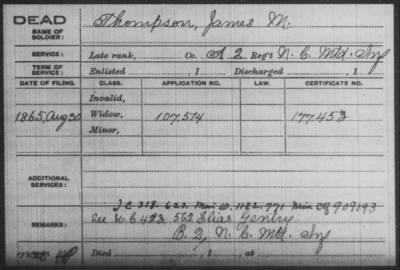 DEAD
NAME OF SOLDIER: Thompson, James M.
SERVICE: Late rank, Co. A 2 Reg't N. C. Mtd. Inf
TERM OF SERVICE: Enlisted , 1 Discharged , 1
DATE OF FILING. CLASS. APPLICATION NO. LAW. CERTIFICATE NO.
Invalid,
1865, Aug 30 Widow, 107,514 177.453
Minor,
ADDITIONAL SERVICES:
I C 318.622. Min O. 1182.771 Min Ctf 909193
REMARKS: See W. C. 423.562 Elias Gentry
B. 2, N. C. Mtd. Inf
Died , 1 , at